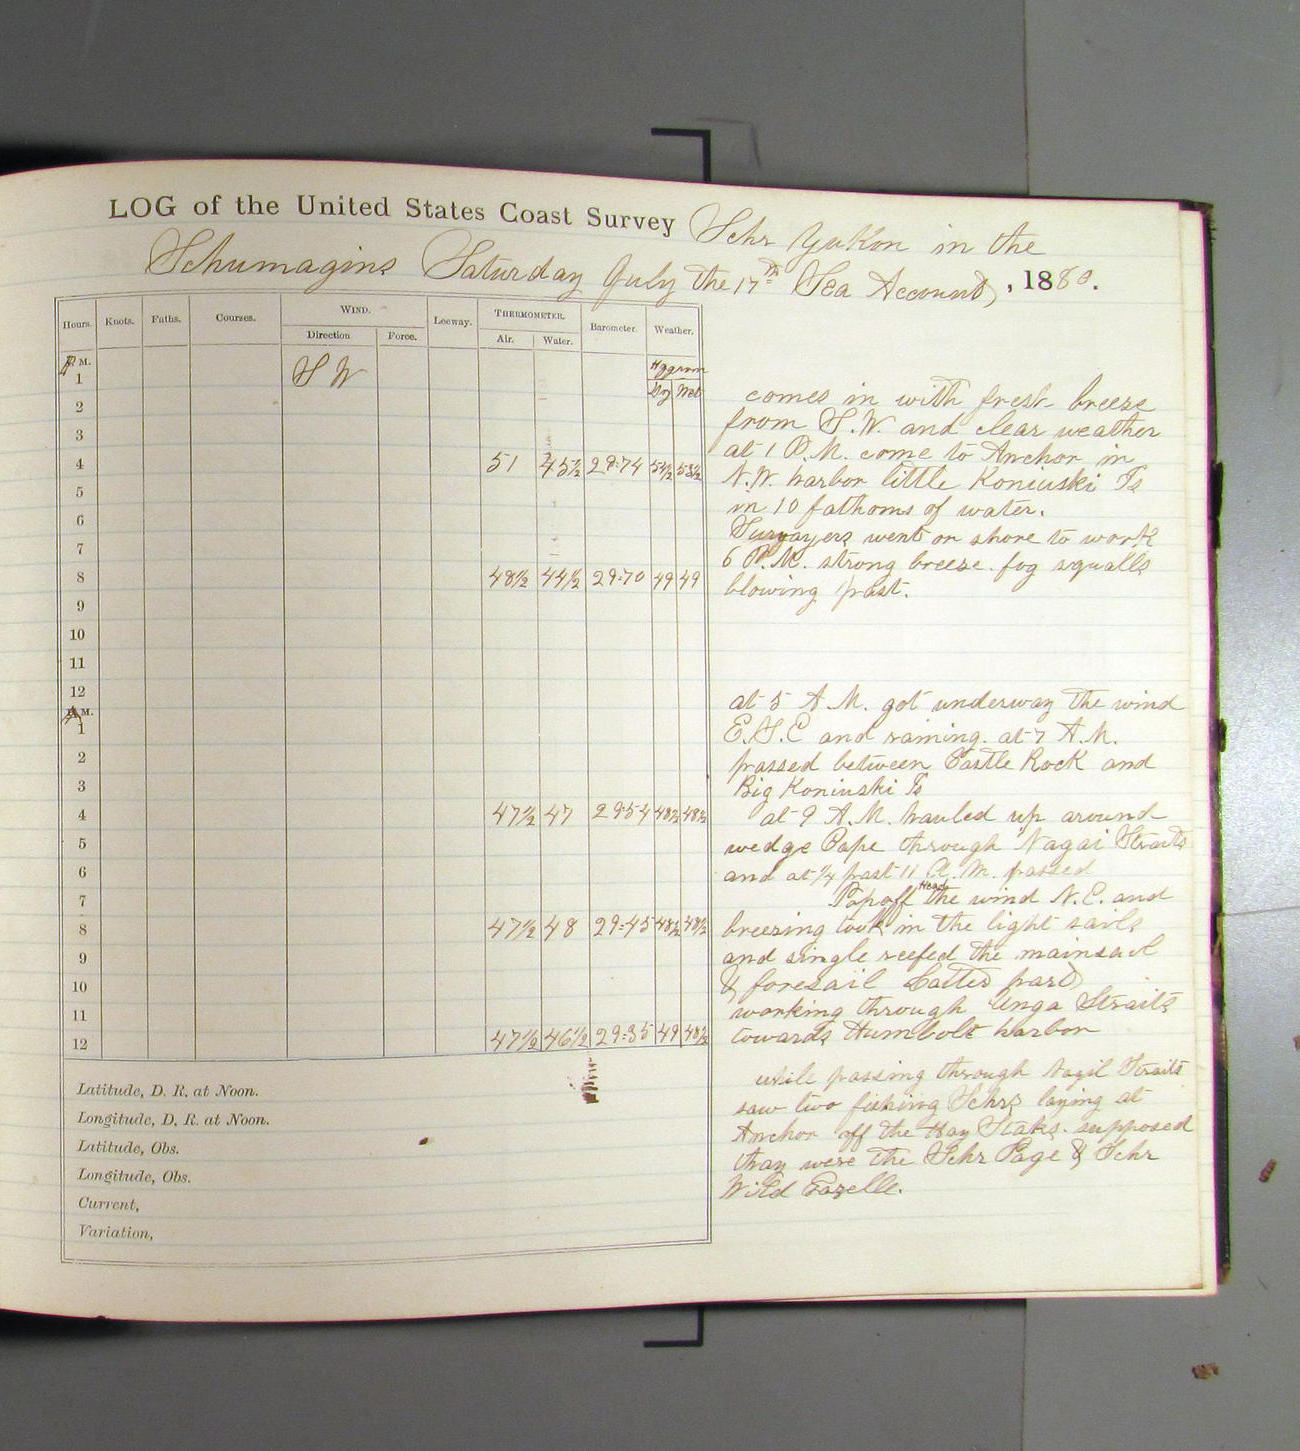 LOG of the United States Coast Survey Schr Yukon in the
Schumagins Saturday July the 17th Sea Account, 1880.
Hours. Knots. Faths. Courses. WIND. Leeway. THERMOMETER. Barometer. Weather.
Direction Force. Air. Water.
P.M. Hygrom
1 S W Dry Wet
2
3
4 51 45½ 29.74 54½ 53½
5
6
7
8 48½ 44½ 29.70 49 49
9
10
11
12
A.M.
1
2
3
4 47½ 47 29.54 48½ 48½
5
6
7
8 47½ 48 29.45 48½ 48½
9
10
11
12 47½ 46½ 29.35 49 48½
Latitude, D. R. at Noon.
Longitude, D. R. at Noon.
Latitude, Obs.
Longitude, Obs.
Current,
Variation,
comes in with fresh breeze
from S.W. and clear weather
at 1 P.M. come to Anchor in
N.W. harbor little Koniuski Is
in 10 fathoms of water.
Survayers went on shore to work
6 P.M. strong breeze. fog squalls
blowing past.
at 5 A.M. got underway the wind
E.S.E and raining. at 7 A.M.
passed between Castle Rock and
Big Koniuski Is
at 9 A.M. hauled up around
wedge Cape through Nagai Straits
and at ¼ past 11 A.M. passed
Popoff Head the wind N.E. and
breezing took in the light sails
and single reefed the mainsail
& foresail Latter part
working through Unga Straits
towards Humbolt harbor
while passing through Nagil Straits
saw two fishing Schrs laying at
Anchor off the Hay Staks. supposed
thay were the Schr Page & Schr
Wild Gazelle.